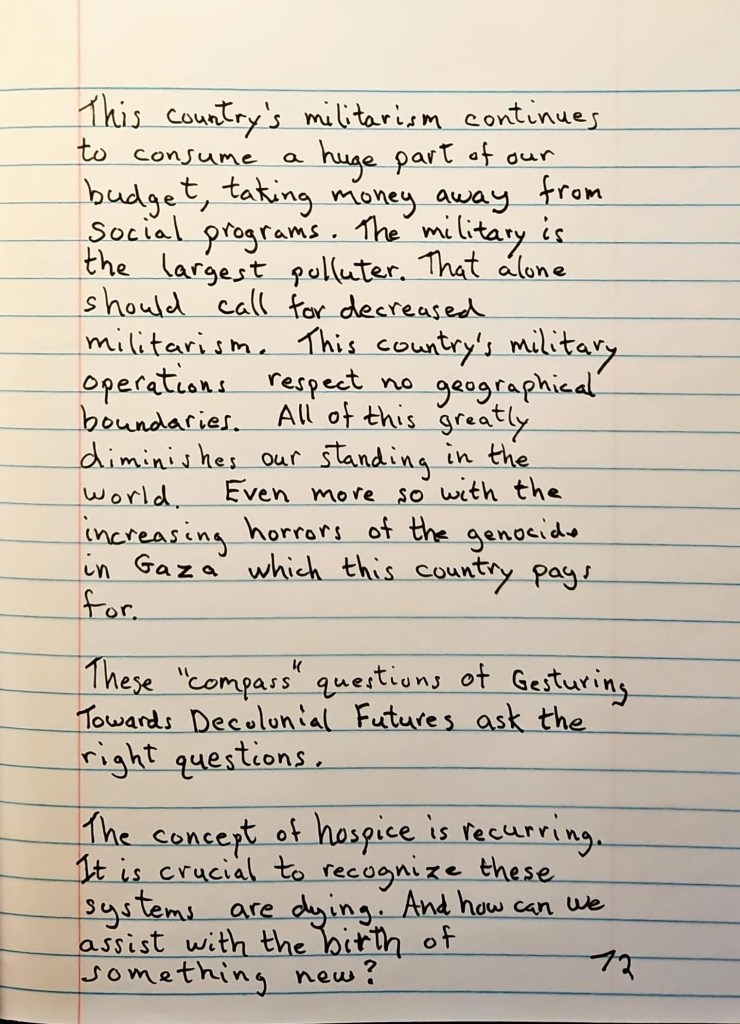 This country's militarism continues
to consume a huge part of our
budget, taking money away from
social programs. The military is
the largest polluter. That alone
should call for decreased
militarism. This country's military
operations respect no geographical
boundaries. All of this greatly
diminishes our standing in the
world. Even more so with the
increasing horrors of the genocide
in Gaza which this country pays
for.
These "compass" questions of Gesturing
Towards Decolonial Futures ask the
right questions.
The concept of hospice is recurring.
It is crucial to recognize these
systems are dying. And how can we
assist with the birth of
something new?
12